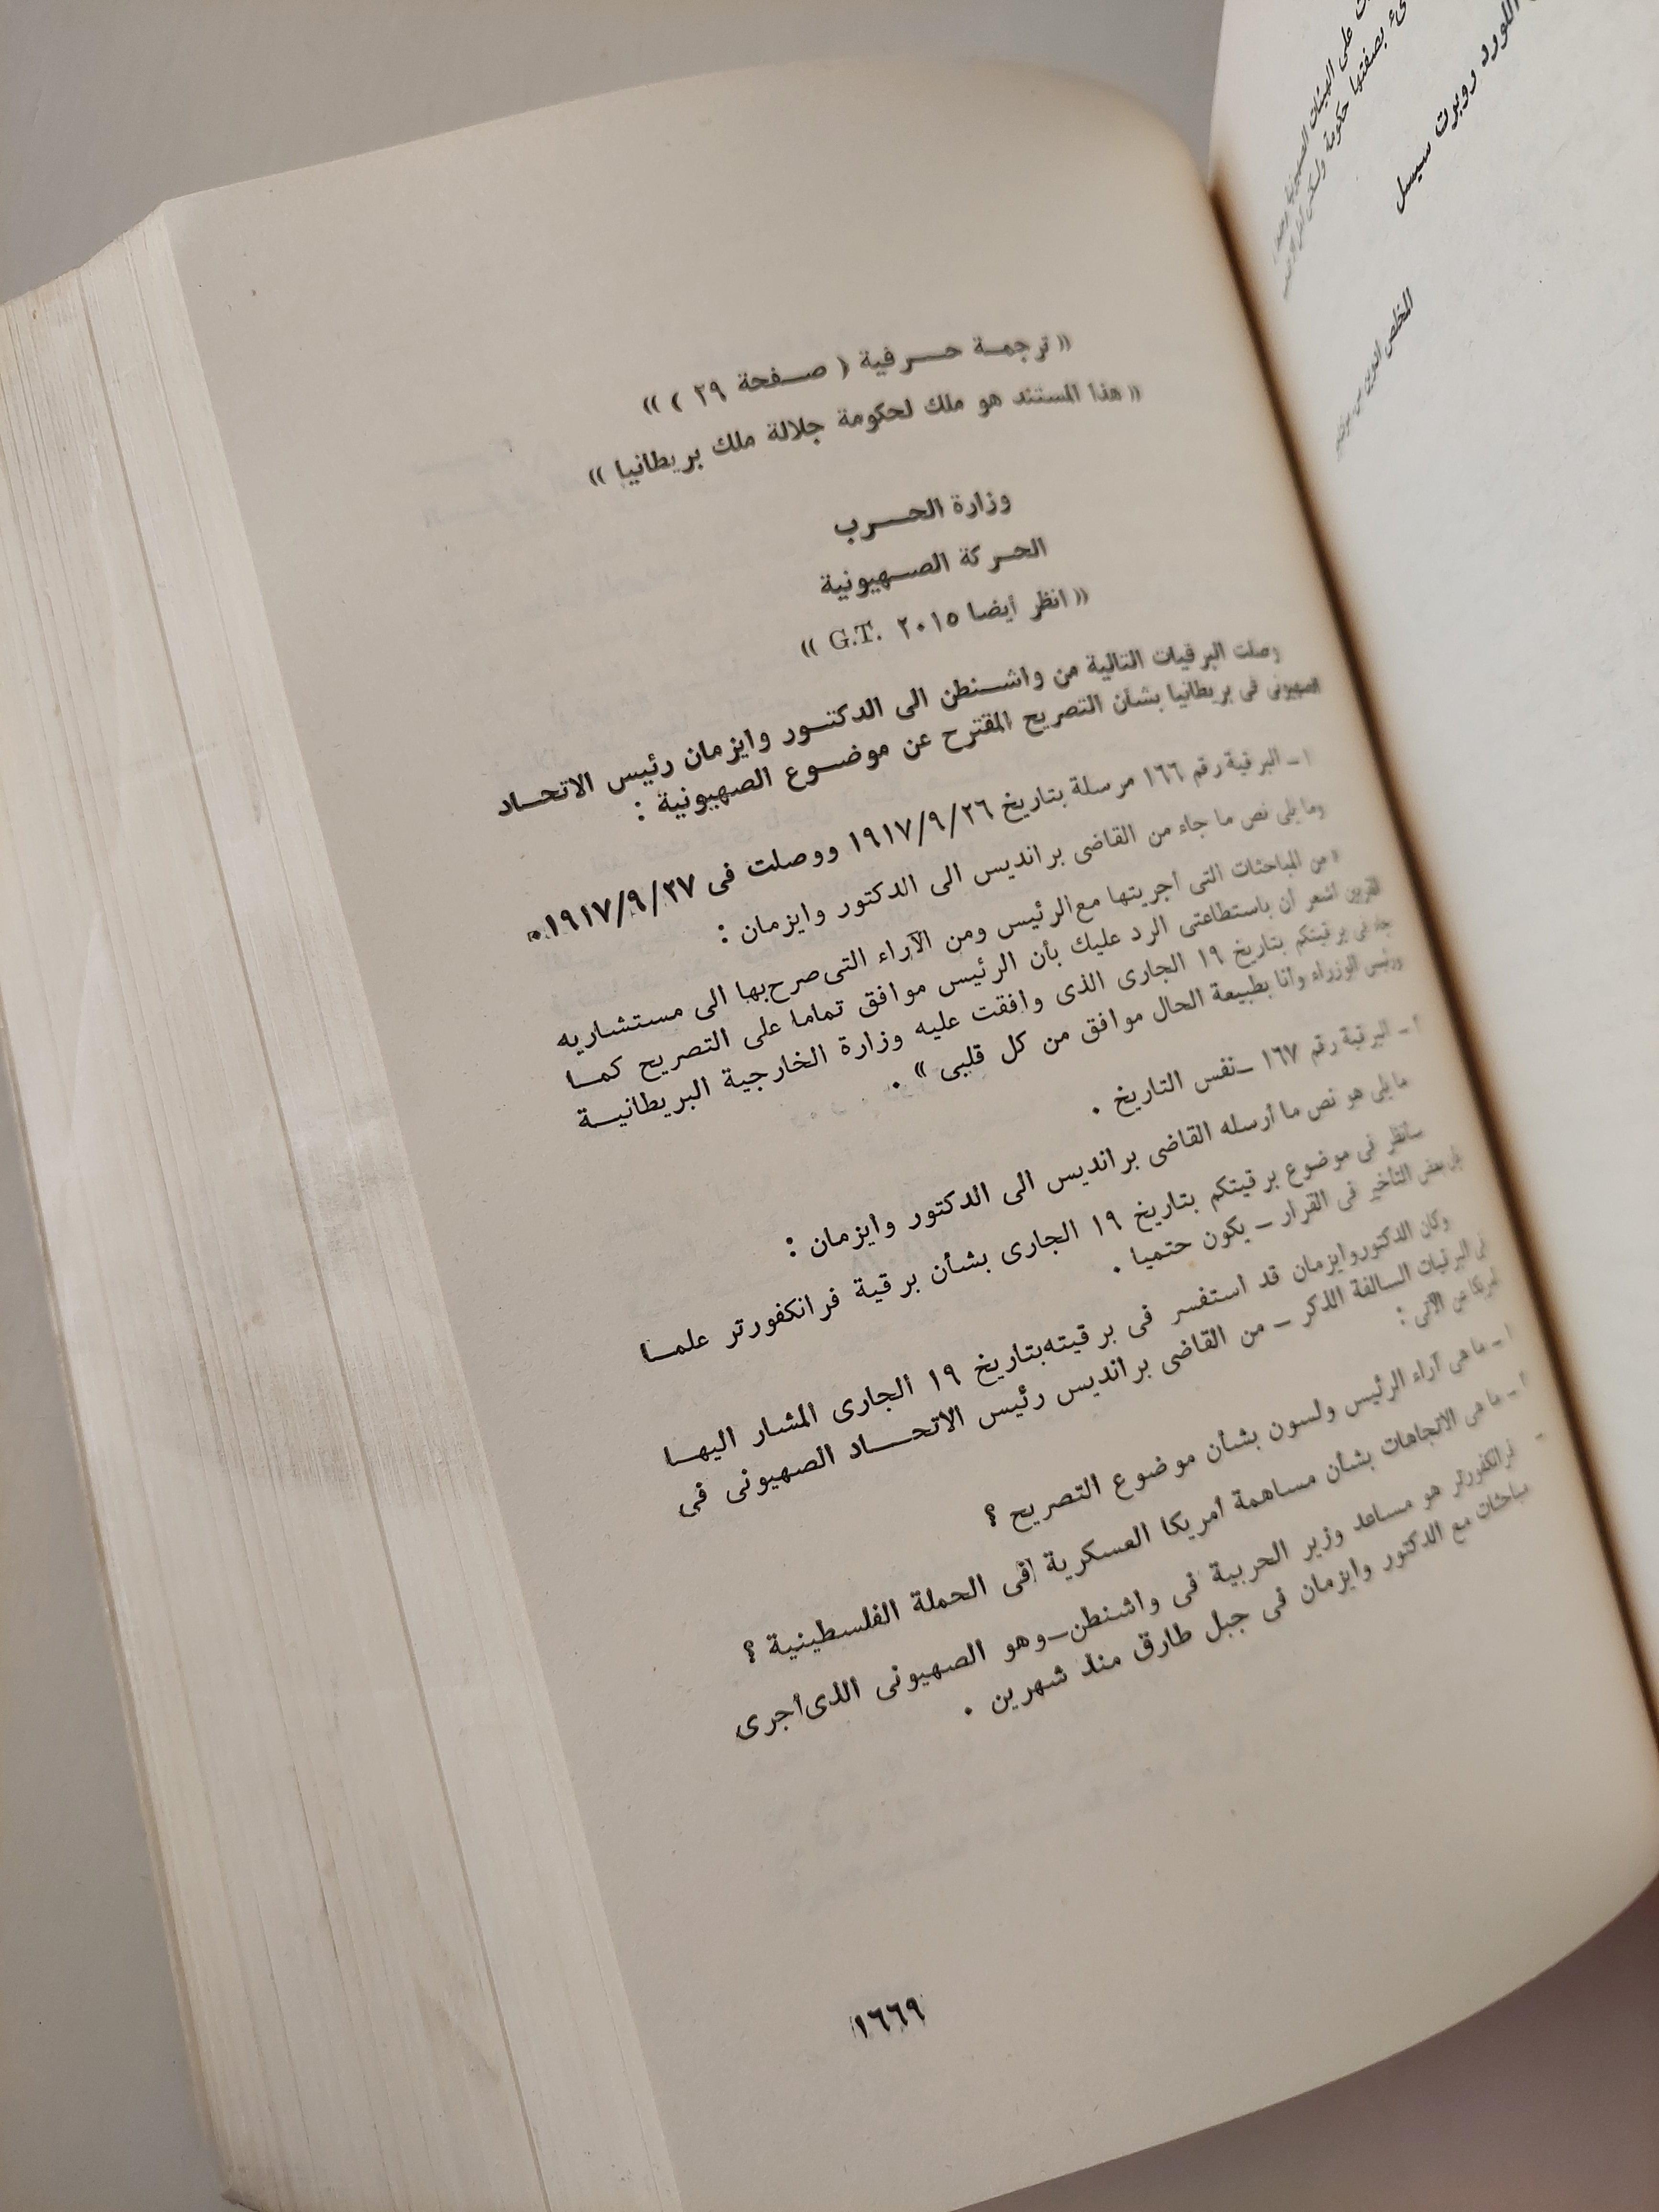 « ترجمـة حـــرفية ( صـــفحة ٢٩ ) »
« هذا المستند هو ملك لحكومة جلالة ملك بريطانيا »
وزارة الحـــرب
الحـركة الصـهيونية
« انظر أيضا ٢٠١٥ .G.T »
وصلت البرقيات التالية من واشـنطن الى الدكتـور وايزمان رئيس الاتحـاد
الصهيونى فى بريطانيا بشأن التصريح المقترح عن موضـوع الصهيونية :
١ ـ البرقية رقم ١٦٦ مرسلة بتاريخ ١٩١٧/٩/٢٦ ووصلت فى ١٩١٧/٩/٢٧ .
وما يلى نص ما جاء من القاضى برانديس الى الدكتور وايزمان :
« من المباحثات التى أجريتها مع الرئيس ومن الآراء التى صرح بها الى مستشاريه
المقربين أشعر أن باستطاعتى الرد عليك بأن الرئيس موافق تماما على التصريح كمـا
جاء فى برقيتكم بتاريخ ١٩ الجارى الذى وافقت عليه وزارة الخارجية البريطانيـة
ورئيس الوزراء وأنا بطبيعة الحال موافق من كل قلبى » .
ـ البرقية رقم ١٦٧ ـ نفس التاريخ .
ما يلى هو نص ما أرسله القاضى برانديس الى الدكتور وايزمان :
سأنظر فى موضوع برقيتكم بتاريخ ١٩ الجارى بشأن برقية فرانكفورتر علمـا
بعض التأخير فى القرار ـ يكون حتميا .
وكان الدكتور وايزمان قد استفسر فى برقيته بتاريخ ١٩ الجارى المشار اليهـا
فى البرقيات السالفة الذكر ـ من القاضى برانديس رئيس الاتحـــاد الصهيونى فى
أمريكا عن الآتى :
١ ـ ما هى آراء الرئيس ولسون بشأن موضوع التصريح ؟
ـ ما هى الاتجاهات بشأن مساهمة أمريكا العسكرية فى الحملة الفلسطينية ؟
ـ فرانكفورتر هو مساعد وزير الحربية فى واشنطن ـ وهو الصهيونى الذى أجرى
مباحثات مع الدكتور وايزمان فى جبل طارق منذ شهرين .
١٦٦٩
على الهيئات الصهيونية
بصفتها حكومة
اللورد روبرت سيسل
المخلص